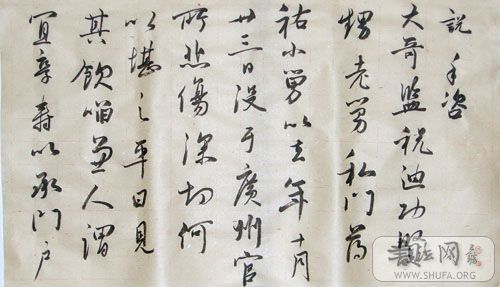 說手咨
大哥監稅迪功賢
甥老舅私門薄
祐小舅以去年十月
廿三日没于廣州官
所悲傷深切何
以堪之平日見
其飲啗兼人謂
宜享壽以承門戶
书法网
WWW.SHUFA.ORG